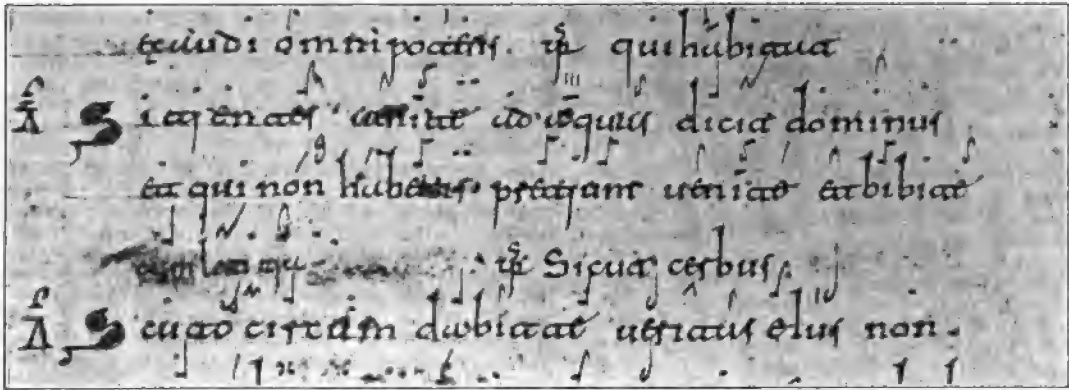 omnipotens. ps qui habitat
A Sitientes uenite ad aquas dicit dominus
et qui non habetis pretium uenite et bibite
ps Sicut cerbus
A Scuto circumdabit te ueritas eius non.